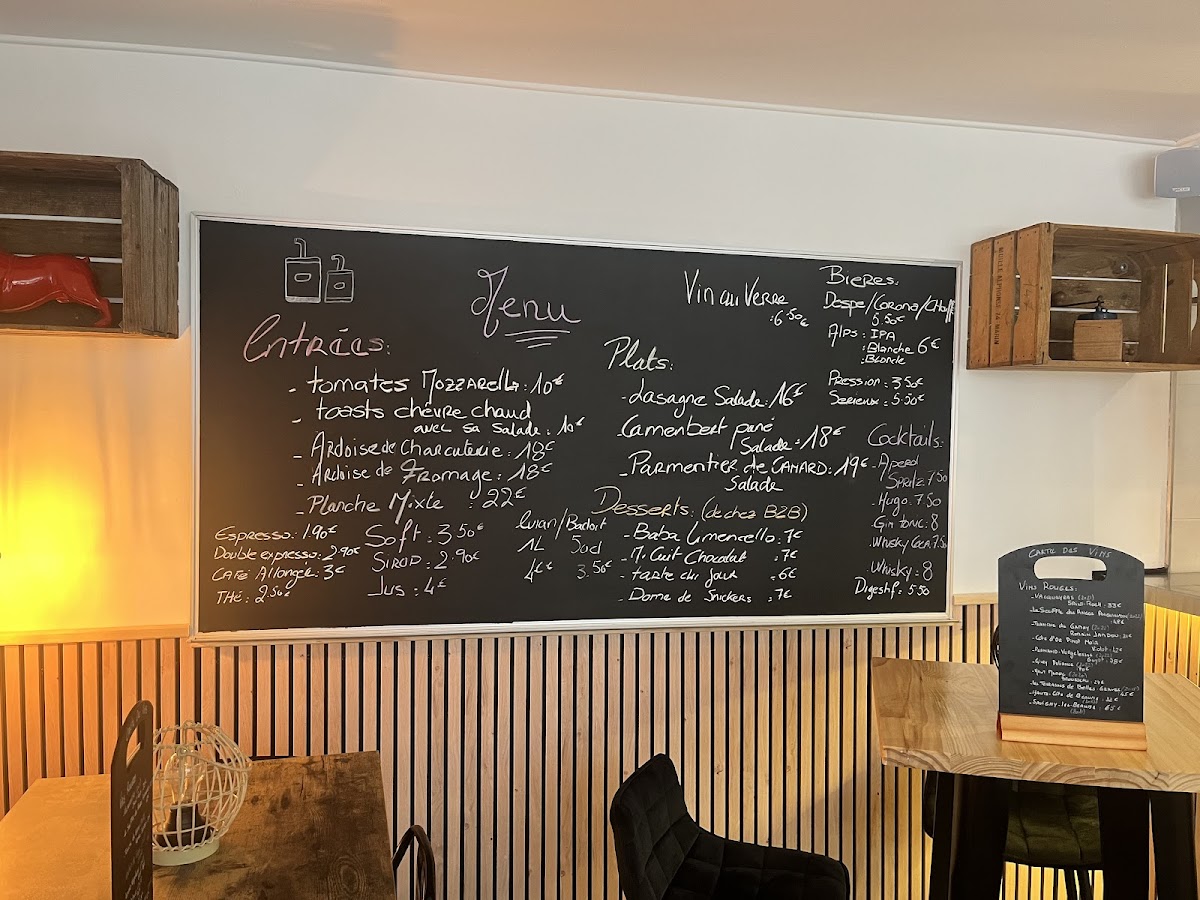 Menu
Entrées:
- tomates Mozzarella: 10€
- toasts chèvre chaud
avec sa salade: 10€
- Ardoise de Charcuterie: 18€
- Ardoise de Fromage: 18€
- Planche Mixte : 22€
Espresso: 1.90€
Double expresso: 2.90€
Café Allongé: 3€
Thé: 2.50€
Soft: 3.50€
Sirop: 2.90€
Jus: 4€
Evian/Badoit
1L 50cl
4€ 3.50€
Plats:
- Lasagne Salade: 16€
- Camembert pané
Salade: 18€
- Parmentier de CANARD: 19€
Salade
Desserts: (de chez B2B)
- Baba Limencello: 7€
- Mi Cuit Chocolat : 7€
- tarte du jour : 6€
- Dome de Snickers : 7€
Vin au Verre
: 6.50€
Bieres:
Despe/Corona/Chouffe
5.50€
Alps: IPA
: Blanche 6€
: Blonde
Pression: 3.50€
Serieux: 5.50€
Cocktails:
- Aperol
Spritz 7.50
- Hugo: 7.50
- Gin tonic: 8
- Whisky Coca 7.50
- Whisky: 8
Digestif: 5.50
CARTE DES VINS
VINS ROUGES: